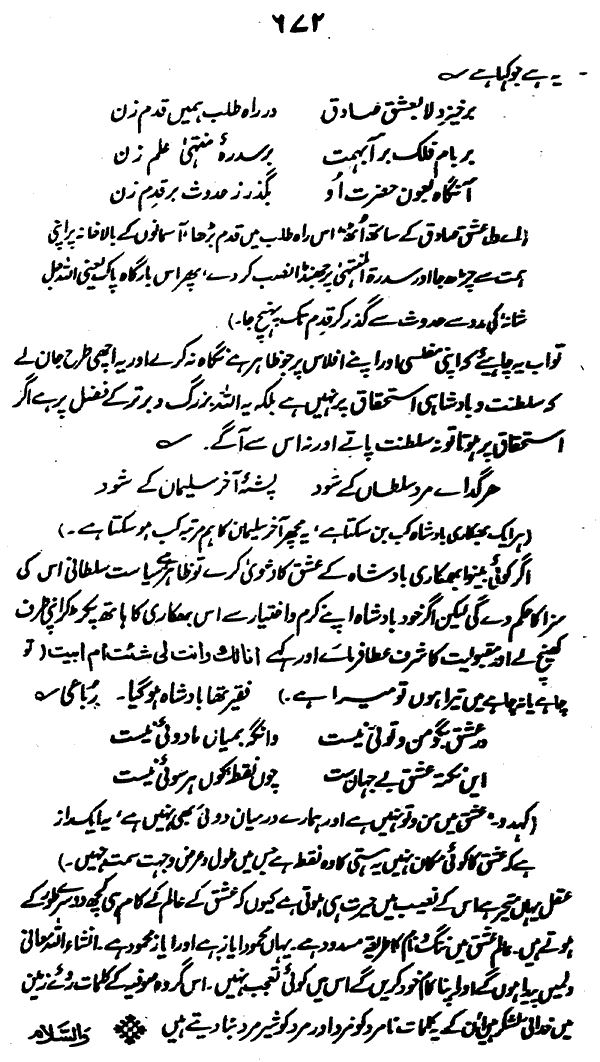 ٦٧٢
یہ ہے جو کہا ہے ؎
برخیز دلا بعشق صادق در راہ طلب ہمیں قدم زن
بر بام فلک برآ بہمت بر سدرۂ منتہیٰ علم زن
آنگاہ بعون حضرت اُو بگذر ز حدوث بر قدم زن
(اے دل عشق صادق کے ساتھ اُٹھ، اس راہ طلب میں قدم بڑھا، آسمانوں کے بالاخانہ پر اپنی
ہمت سے چڑھ جا اور سدرۃ المنتہیٰ پر جھنڈا نصب کر دے، پھر اس بارگاہ پاک یعنی اللہ جل
شانہٗ کی مدد سے حدوث سے گذر کر قِدم تک پہنچ جا۔)
تو اب یہ چاہیئے کہ اپنی مفلسی اور اپنے افلاس پر جو ظاہر ہے نگاہ نہ کرے اور یہ اچھی طرح جان لے
کہ سلطنت و بادشاہی استحقاق پر نہیں ہے بلکہ یہ اللہ بزرگ و برتر کے فضل پر ہے اگر
استحقاق پر ہوتا تو نہ سلطنت پاتے اور نہ اس سے آگے۔ ؎
هر گداے مرد سلطاں کے شود پشۂ آخر سلیماں کے شود
(ہر ایک بھکاری بادشاہ کب بن سکتا ہے، یہ مچھر آخر سلیمان کا ہم مرتبہ کب ہو سکتا ہے۔)
اگر کوئی بینوا بھکاری بادشاہ کے عشق کا دعویٰ کرے تو ظاہر ہے سیاست سلطانی اس کی
سزا کا حکم دے گی لیکن اگر خود بادشاہ اپنے کرم و اختیار سے اس بھکاری کا ہاتھ پکڑ کر اپنی طرف
کھینچ لے اور مقبولیت کا شرف عطا فرمائے اور کہے انا لك وانت لی شئت ام ابیت (تو
چاہے یا نہ چاہے میں تیرا ہوں تو میرا ہے۔) فقیر تھا بادشاہ ہو گیا۔ رُباعی ؎
در عشق بگو من و توئی نیست وانگہ بمیاں ما دوئی نیست
ایں نکتۂ عشق بے جہان ست چوں نقطہ بکوں ہر سوئی نیست
(کہدو۔ عشق میں من و تو نہیں ہے اور ہمارے درمیان دوئی بھی نہیں ہے، یہ ایک راز
ہے کہ عشق کا کوئی مکان نہیں یہ ہستی کا وہ نقطہ ہے جس میں طول و عرض و جہت سمت نہیں۔)
عقل یہاں متحیر ہے اس کے نصیب میں حیرت ہی ہوتی ہے کیوں کہ عشق کے عالم کے کام ہی کچھ دوسرے طور کے
ہوتے ہیں۔ عالم عشق میں ننگ و نام کا طریقہ مسدود ہے۔ یہاں محمود ایاز ہے اور ایاز محمود ہے۔ انشاء اللہ تعالیٰ
پیدا ہوں گے اور اپنا کام خود کریں گے اس میں کوئی تعجب نہیں۔ اس گروہ صوفیہ کے کلمات روئے زمین
میں خدائی لشکر ہیں ان کے یہ کلمات نامرد کو مرد اور مرد کو شیر مرد بنا دیتے ہیں والسلام